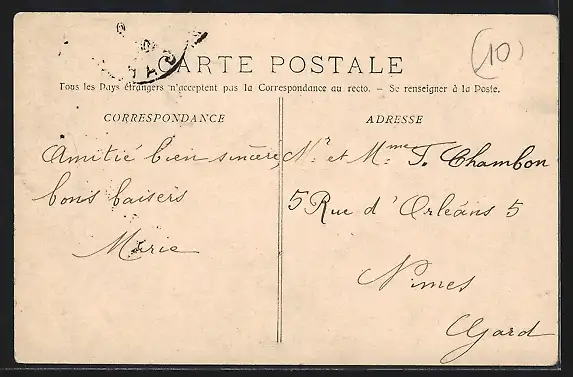 (10)
CARTE POSTALE
Tous les Pays étrangers n'acceptent pas la Correspondance au recto. – Se renseigner à la Poste.
CORRESPONDANCE
Amitié bien sincère,
bons baisers
Marie
ADRESSE
Mr et Mme T. Chambon
5 Rue d'Orléans 5
Nimes
Gard